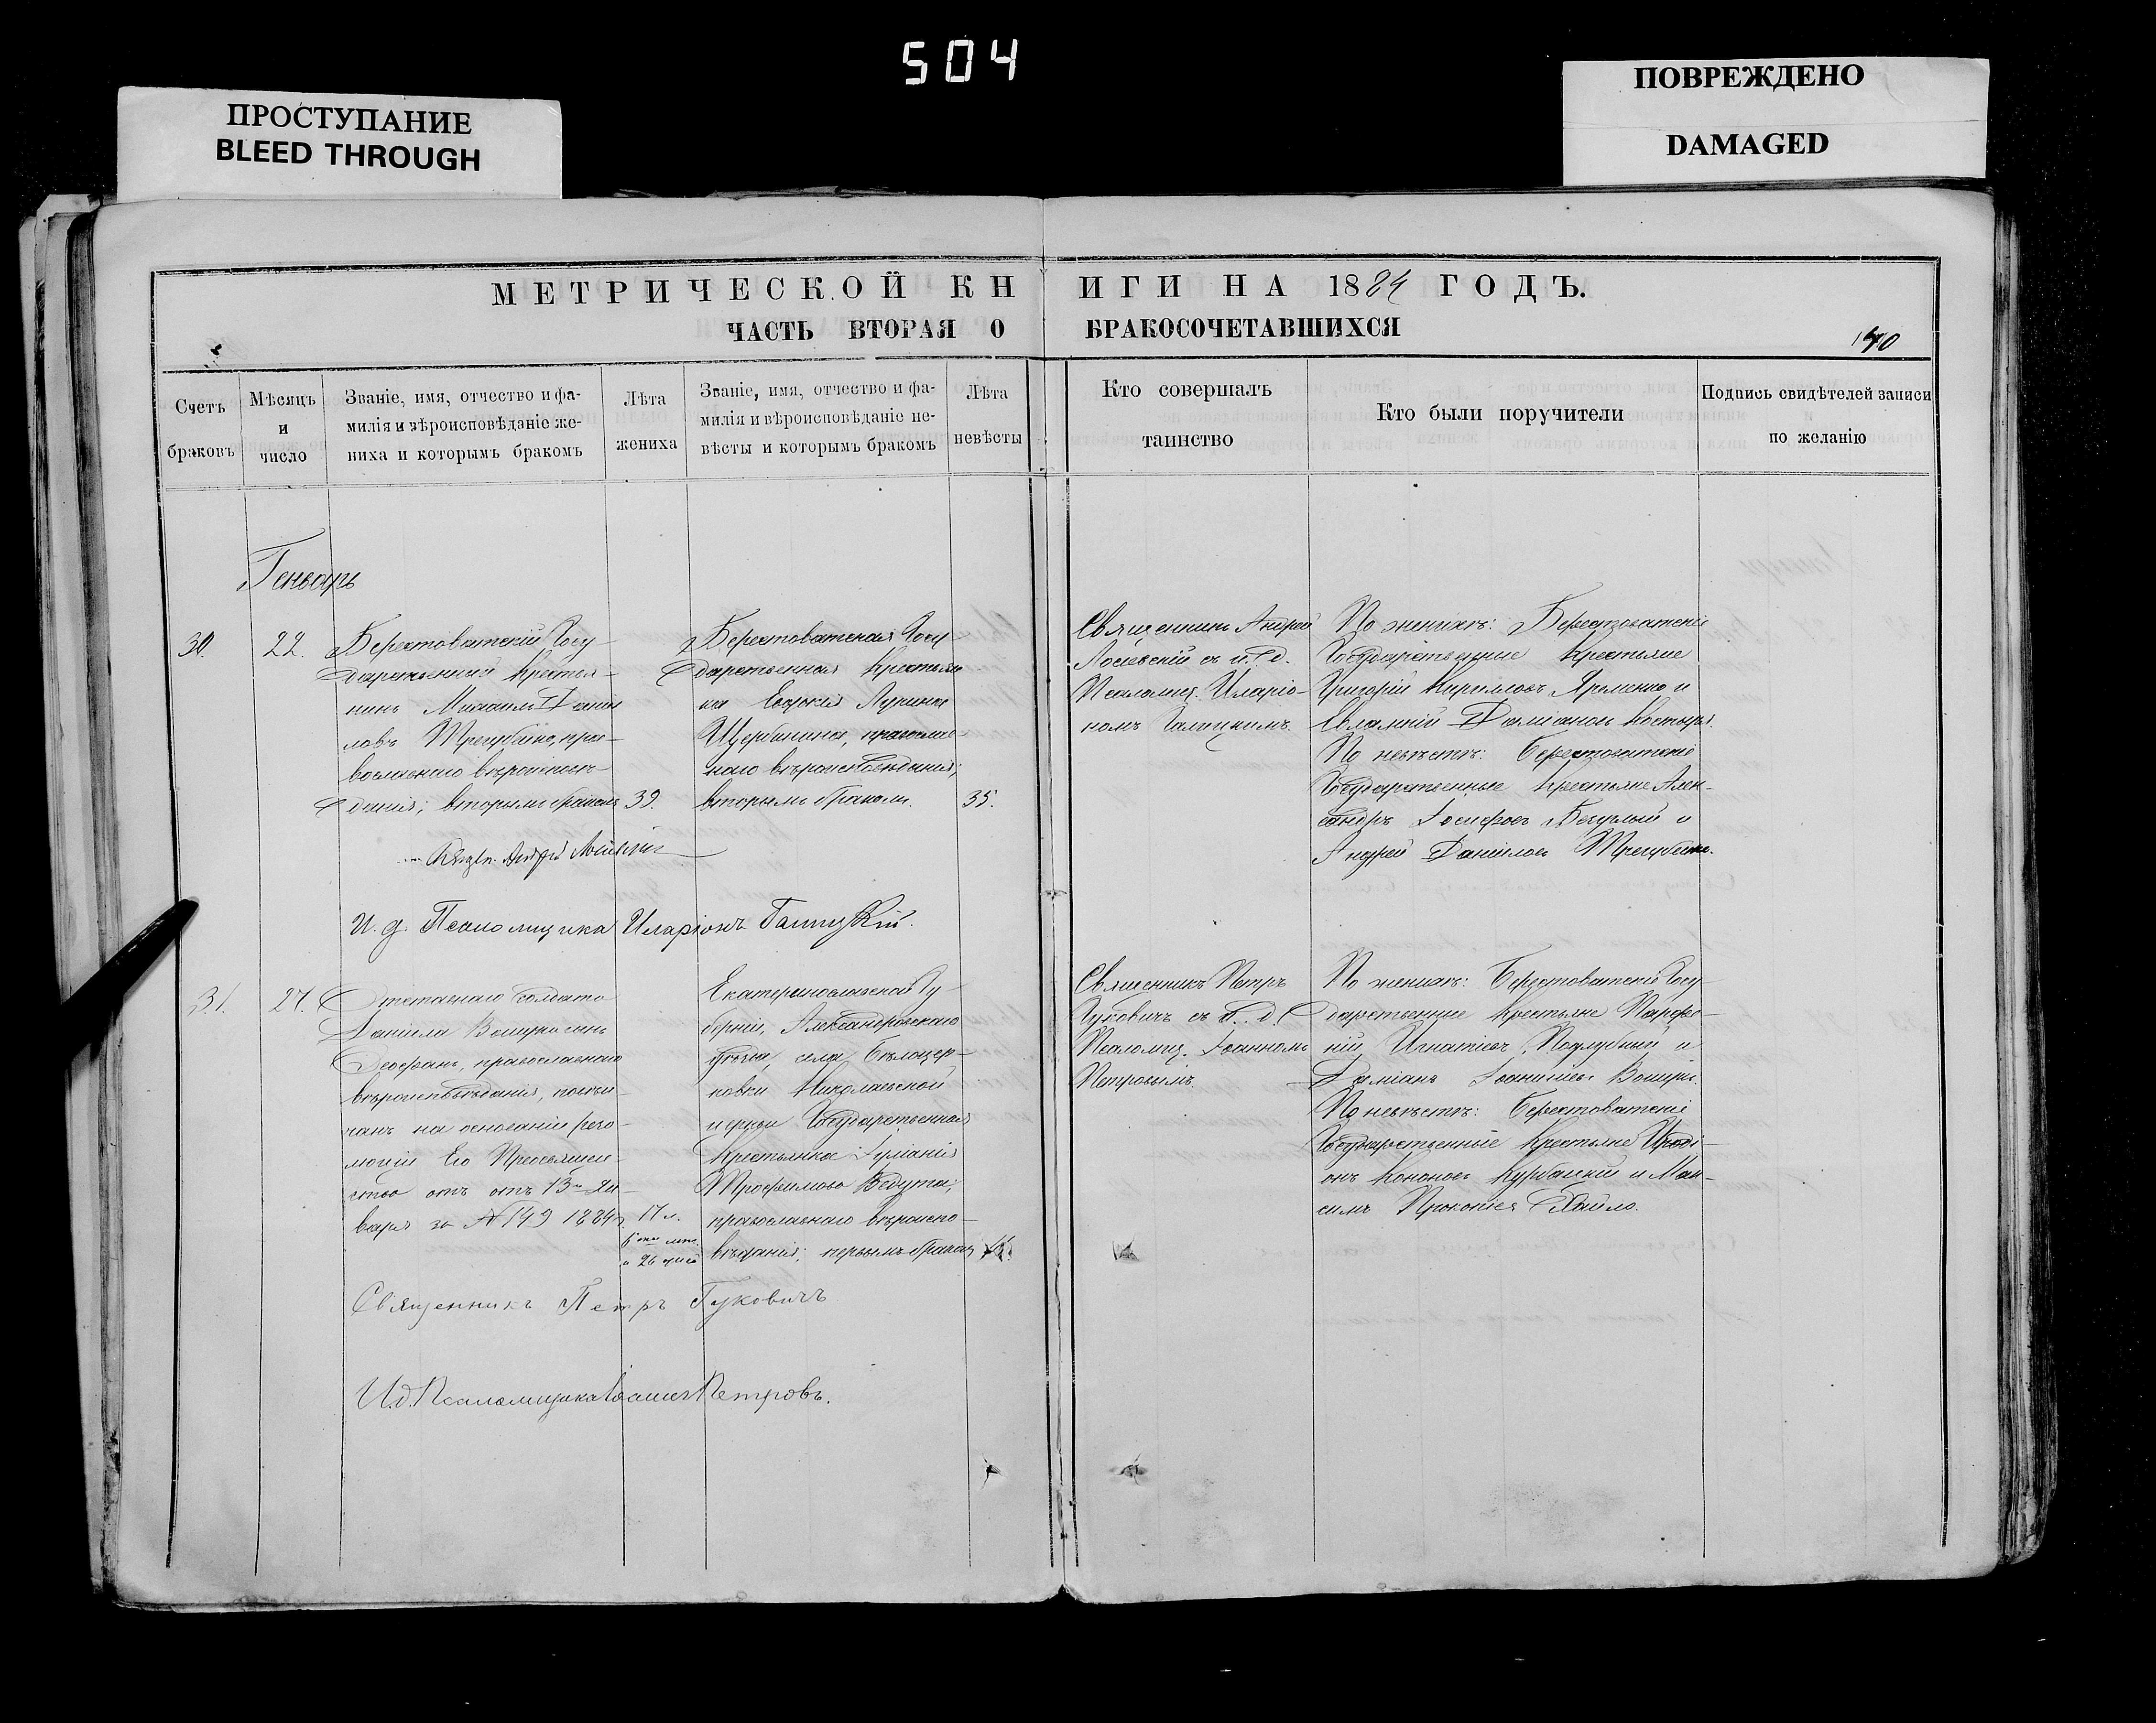 504
ПРОСТУПАНИЕ
BLEED THROUGH
ПОВРЕЖДЕНО
DAMAGED
МЕТРИЧЕСКОЙ КНИГИ НА 1884 ГОДЪ.
ЧАСТЬ ВТОРАЯ О БРАКОСОЧЕТАВШИХСЯ
140
Счетъ
браковъ
Мѣсяцъ
и
число
Званіе, имя, отчество и фа-
милія и вѣроисповѣданіе же-
ниха и которымъ бракомъ
Лѣта
жениха
Званіе, имя, отчество и фа-
милія и вѣроисповѣданіе не-
вѣсты и которымъ бракомъ
Лѣта
невѣсты
Кто совершалъ
таинство
Кто были поручители
Подпись свидѣтелей записи
по желанію
Генварь
30.
22.
Берестоватскій Госу-
дарственный Крестья-
нинъ Михаилъ Даніи
ловъ Трегубенко, пра-
вославнаго вѣроисповѣ-
данія; вторымъ бракомъ
39.
Берестоватская Госу-
дарственная Крестьян
ка Евдокія Лукина
Щербинина, православ-
наго вѣроисповѣданія;
вторымъ бракомъ.
35.
Священникъ Андрей
Лосіевскій съ и. д.
Псаломщ. Иларіо-
номъ Галицкимъ.
По женихѣ: Берестоватскіе
Государственные Крестьяне
Григорій Кириловъ Яременко и
Евлампій Даміановъ Костыря.
По невѣстѣ: Берестоватскіе
Государственные Крестьяне Алек-
сандръ Іосифовъ Бегулый и
Андрей Даніиловъ Трегубенко.
Андрей Лосіевскій
И. д. Псаломщика Иларіонъ Галицкій.
31.
27.
Отставнаго солдата
Даніила сынъ
Ѳеофанъ, православнаго
вѣроисповѣданія, повѣн-
чанъ на основаніи резо-
люціи Его Преосвящен-
ства отъ 13го Ген-
варя за № 149 1884 г.
17 л.
мѣс.
и 26 дней
Екатеринославской Гу-
берніи, Александровскаго
уѣзда, села Бѣлоцер-
ковки Николаевской
церкви Государственная
Крестьянка Іуліанія
Трофимова Ведута,
православнаго вѣроиспо-
вѣданія; первымъ бракомъ
Священникъ Петръ
Гуковичъ съ и. д.
Псаломщ. Іоанномъ
Петровымъ.
По женихѣ: Берестоватскіе Госу-
дарственные Крестьяне Парфе-
ній Игнатіевъ Поддубный и
Даміанъ
По невѣстѣ: Берестоватскіе
Государственные Крестьяне Иродi-
онъ Кононовъ Курбацкій и Мак-
симъ Прокопіевъ
Священникъ Петръ Гуковичъ
И.д. Псаломщика Іоаннъ Петровъ.